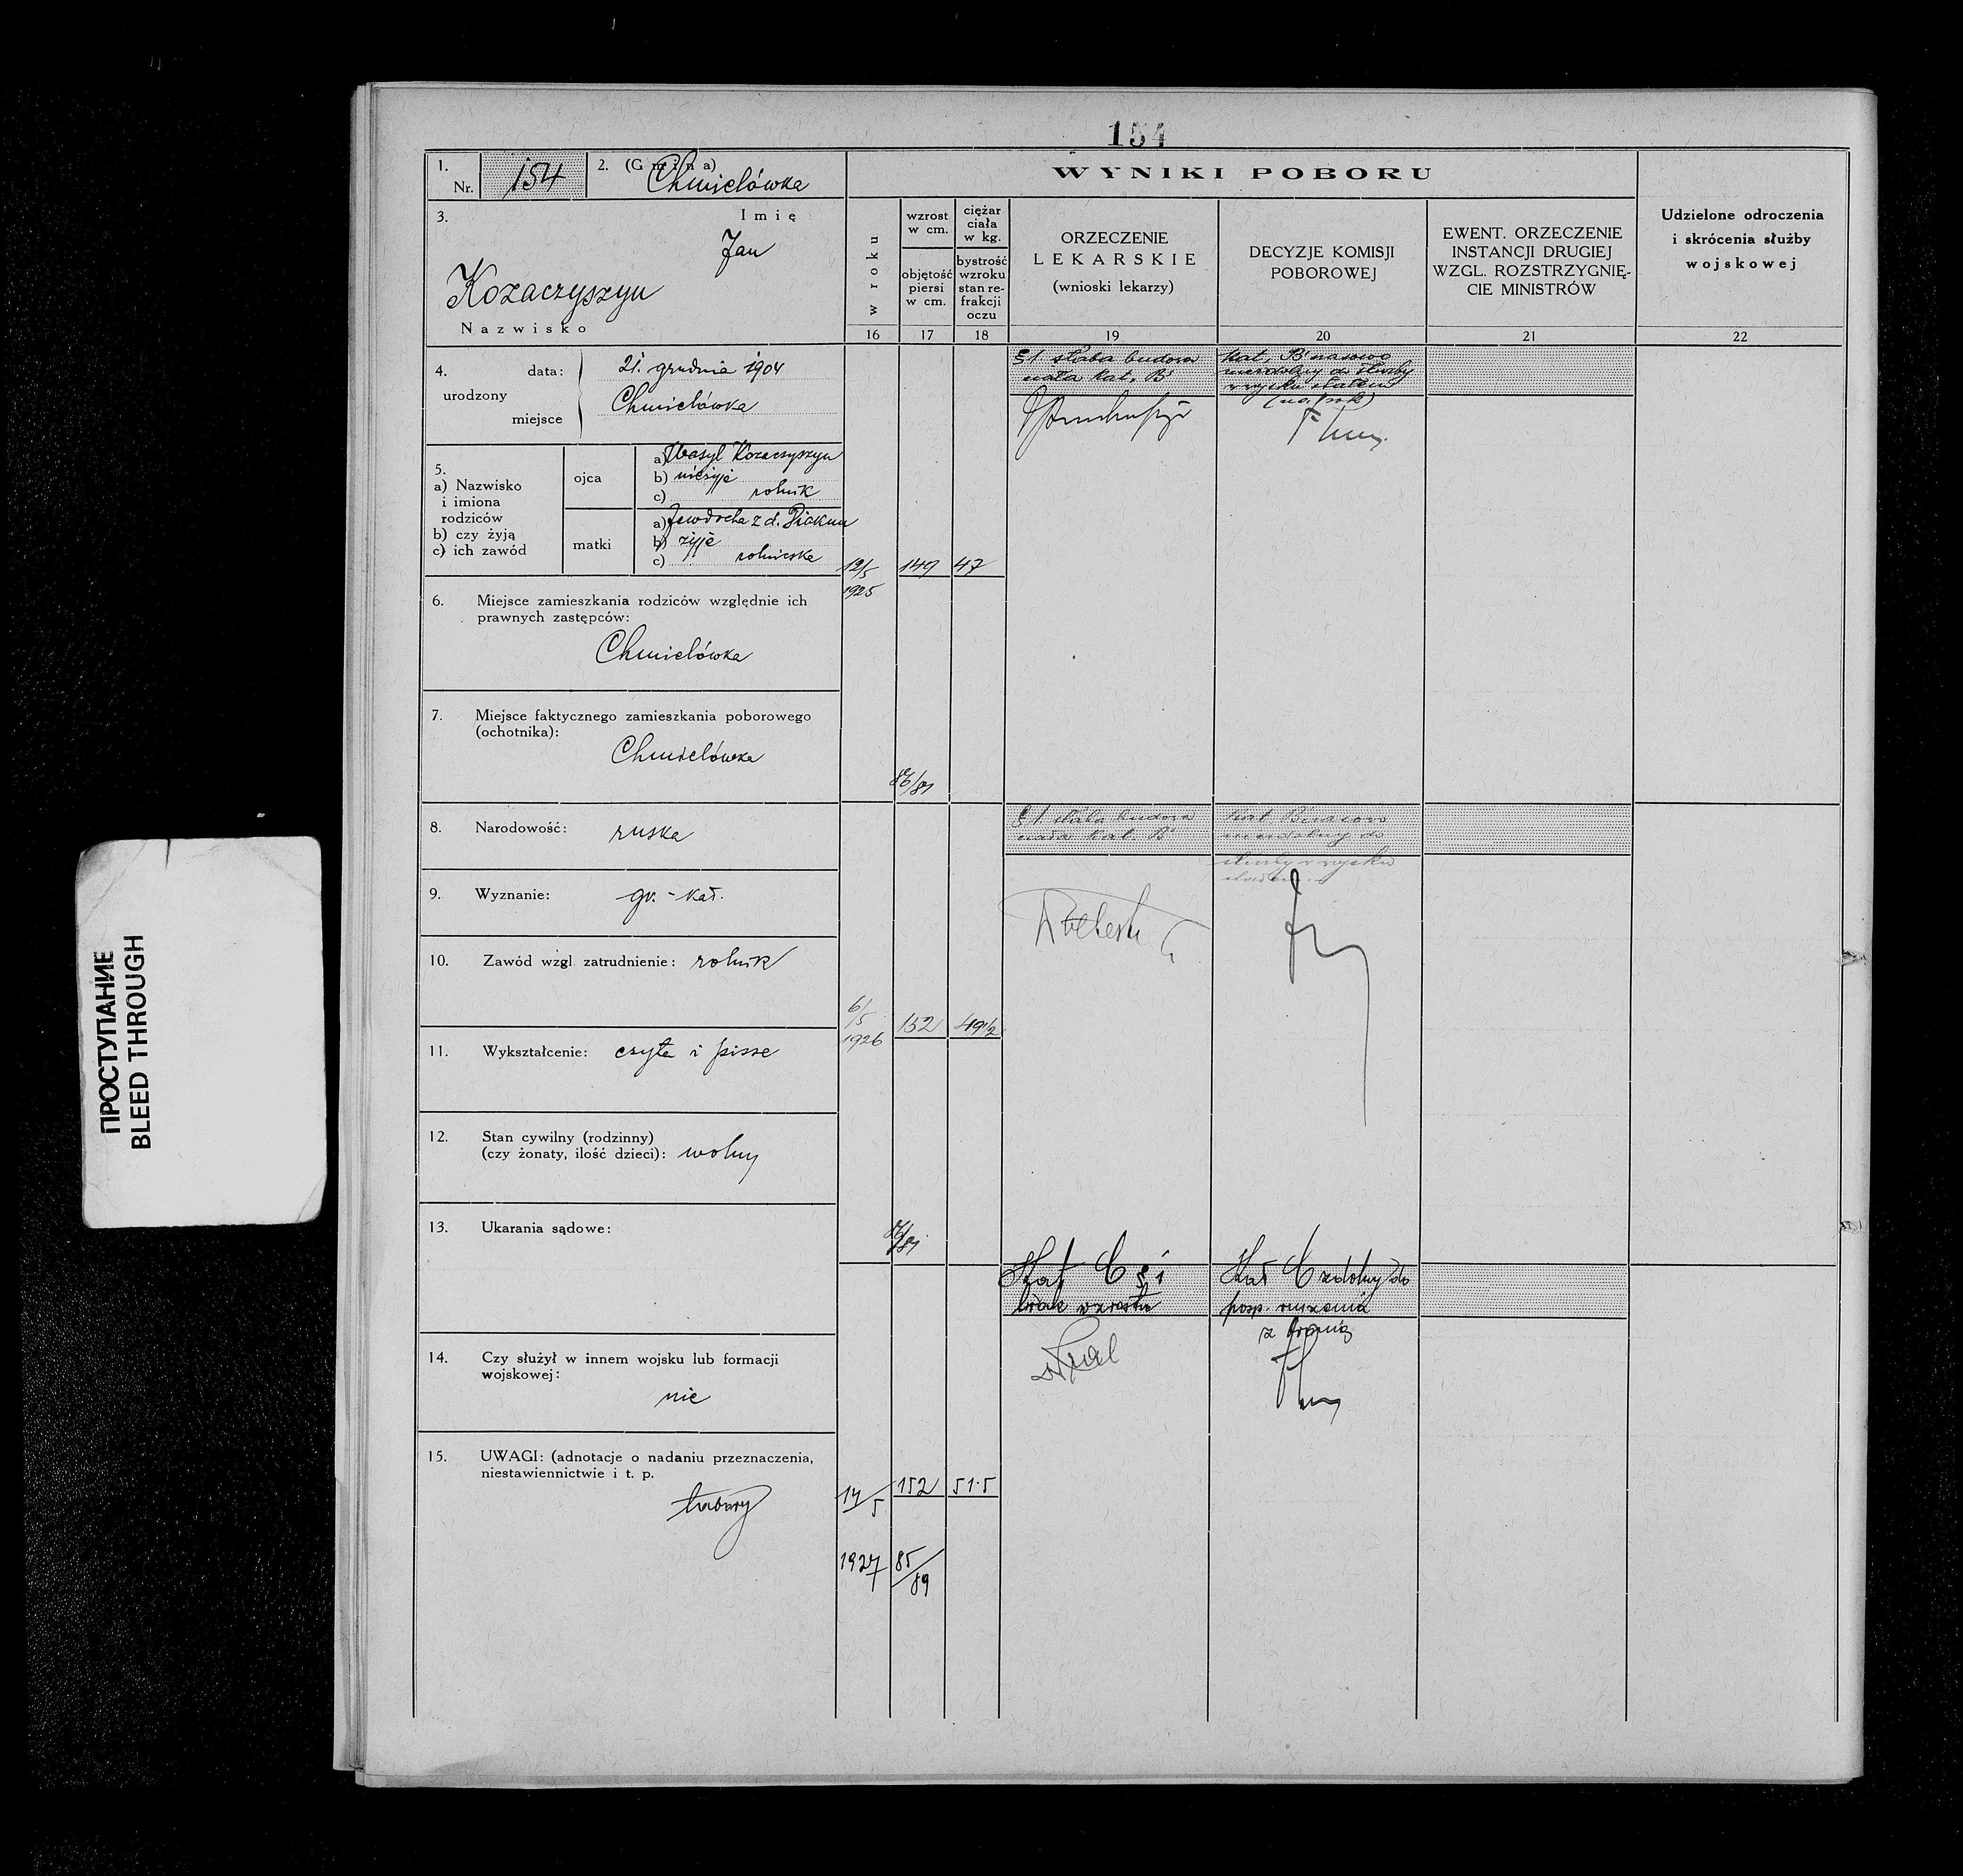 154
1.
Nr. 154
2. (Gmina) Chmielówka
WYNIKI POBORU
Udzielone odroczenia
i skrócenia służby
wojskowej
3.
Imię
Jan
Kozaczyszyn
Nazwisko
w roku
wzrost
w cm.
objętość
piersi
w cm.
ciężar
ciała
w kg.
bystrość
wzroku
stan re-
frakcji
oczu
ORZECZENIE
LEKARSKIE
(wnioski lekarzy)
DECYZJE KOMISJI
POBOROWEJ
EWENT. ORZECZENIE
INSTANCJI DRUGIEJ
WZGL. ROZSTRZYGNIĘ-
CIE MINISTRÓW
16 17 18 19 20 21 22
4.
urodzony
data: 21. grudnia 1904
miejsce Chmielówka
5.
a) Nazwisko
i imiona
rodziców
b) czy żyją
c) ich zawód
ojca
a) Wasyl Kozaczyszyn
b) nieżyje
c) rolnik
matki
a) Jewdocha z d. Diakun
b) żyje
c) rolniczka
6. Miejsce zamieszkania rodziców względnie ich
prawnych zastępców:
Chmielówka
7. Miejsce faktycznego zamieszkania poborowego
(ochotnika):
Chmielówka
8. Narodowość: ruska
9. Wyznanie: gr.-kat.
10. Zawód wzgl. zatrudnienie: rolnik
11. Wykształcenie: czyta i pisze
12. Stan cywilny (rodzinny)
(czy żonaty, ilość dzieci): wolny
13. Ukarania sądowe:
14. Czy służył w innem wojsku lub formacji
wojskowej:
nie
15. UWAGI: (adnotacje o nadaniu przeznaczenia,
niestawiennictwie i t. p.
tabory
12/5
1925
149 47
§1 słaba budowa
ciała kat. B
kat. B czasowo
niezdolny do służby
w wojsku stałem
(na 1 rok)
6/5
1926
152 49 1/2
§1 słaba budowa
ciała kat. B
kat B czasowo
niezdolny do
służby w wojsku
stałem
14/5
1927
152 51·5
85/89
Kat C §1
brak wzrostu
Kat C zdolny do
posp. ruszenia
z bronią
ПРОСТУПАНИЕ
BLEED THROUGH